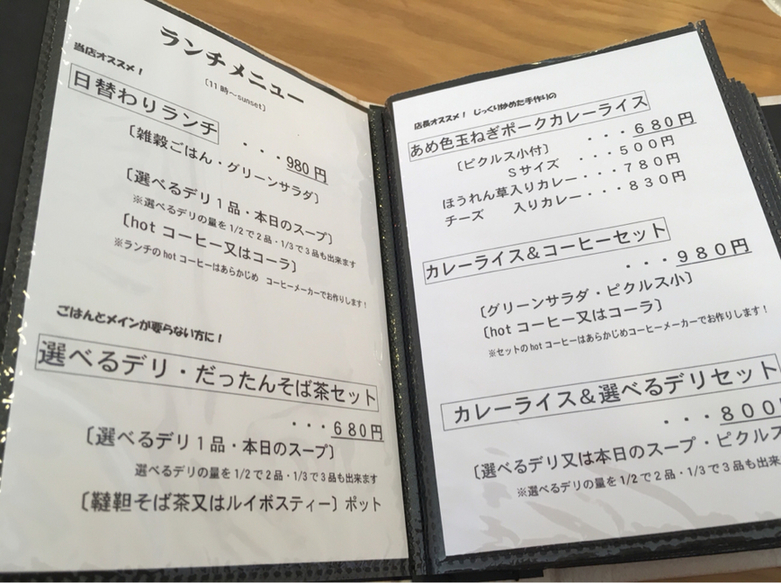 ランチメニュー
〔11時～sunset〕
当店オススメ！
日替わりランチ
・・・980円
〔雑穀ごはん・グリーンサラダ〕
〔選べるデリ１品・本日のスープ〕
※選べるデリの量を1/2で2品・1/3で3品も出来ます
〔hot コーヒー又はコーラ〕
※ランチのhotコーヒーはあらかじめ コーヒーメーカーでお作りします！
ごはんとメインが要らない方に！
選べるデリ・だったんそば茶セット
・・・680円
〔選べるデリ１品・本日のスープ〕
選べるデリの量を1/2で2品・1/3で3品も出来ます
〔韃靼そば茶又はルイボスティー〕ポット
店長オススメ！ じっくり炒めた手作りの
あめ色玉ねぎポークカレーライス
・・・６８０円
〔ピクルス小付〕
Ｓサイズ ・・・５００円
ほうれん草入りカレー・・・７８０円
チーズ 入りカレー・・・８３０円
カレーライス＆コーヒーセット
・・・９８０円
〔グリーンサラダ・ピクルス小〕
〔hot コーヒー又はコーラ〕
※セットのhotコーヒーはあらかじめコーヒーメーカーでお作りします！
カレーライス＆選べるデリセット
・・・８００
〔選べるデリ又は本日のスープ・ピクルス
※選べるデリの量を1/2で2品・1/3で3品も出来